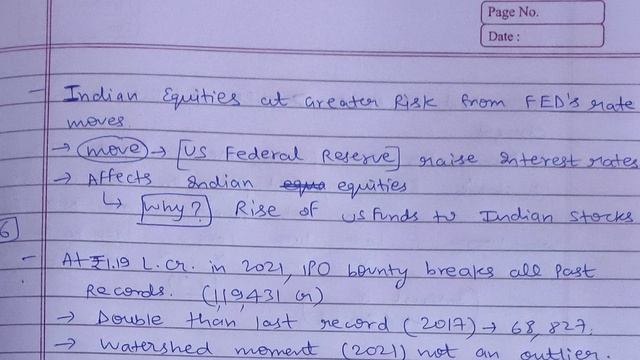 Page No.
Date :
- Indian Equities at Greater Risk from FED's rate
moves.
→ move → [US Federal Reserve] raise interest rates
→ Affects Indian equa equities
↳ Why? Rise of US funds to Indian stocks
6
- At ₹1.19 L.cr. in 2021, IPO bounty breaks all Past
Records. (1,19,431 cr)
→ Double than last record (2017) → 68,827.
→ Watershed moment (2021) not an outlier.